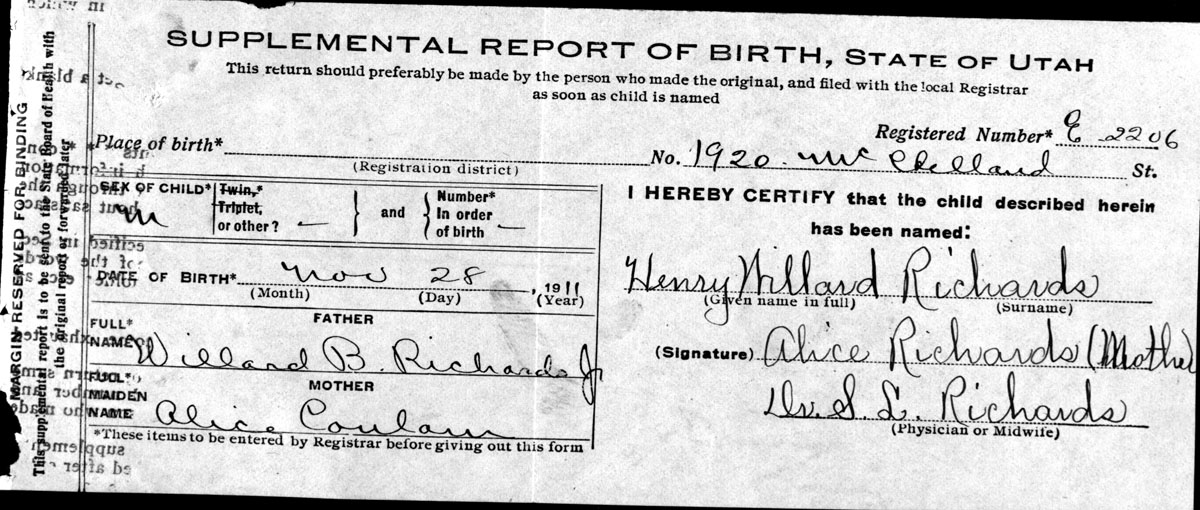 SUPPLEMENTAL REPORT OF BIRTH, STATE OF UTAH
This return should preferably be made by the person who made the original, and filed with the local Registrar
as soon as child is named
Registered Number* E 2206
Place of birth* No. 1920 McClelland St.
(Registration district)
SEX OF CHILD* M
Twin,*
Triplet,
or other? —
and
Number*
In order
of birth —
I HEREBY CERTIFY that the child described herein
has been named:
DATE OF BIRTH* Nov 28, 1911
(Month) (Day) (Year)
Henry Willard Richards
(Given name in full) (Surname)
FATHER
FULL*
NAME Willard B. Richards Jr
(Signature) Alice Richards (Mother
MOTHER
FULL*
MAIDEN
NAME Alice Coulam
Dr. S. L. Richards
(Physician or Midwife)
*These items to be entered by Registrar before giving out this form
MARGIN RESERVED FOR BINDING
This supplemental report is to be sent to the State Board of Health with
the original report or forwarded later